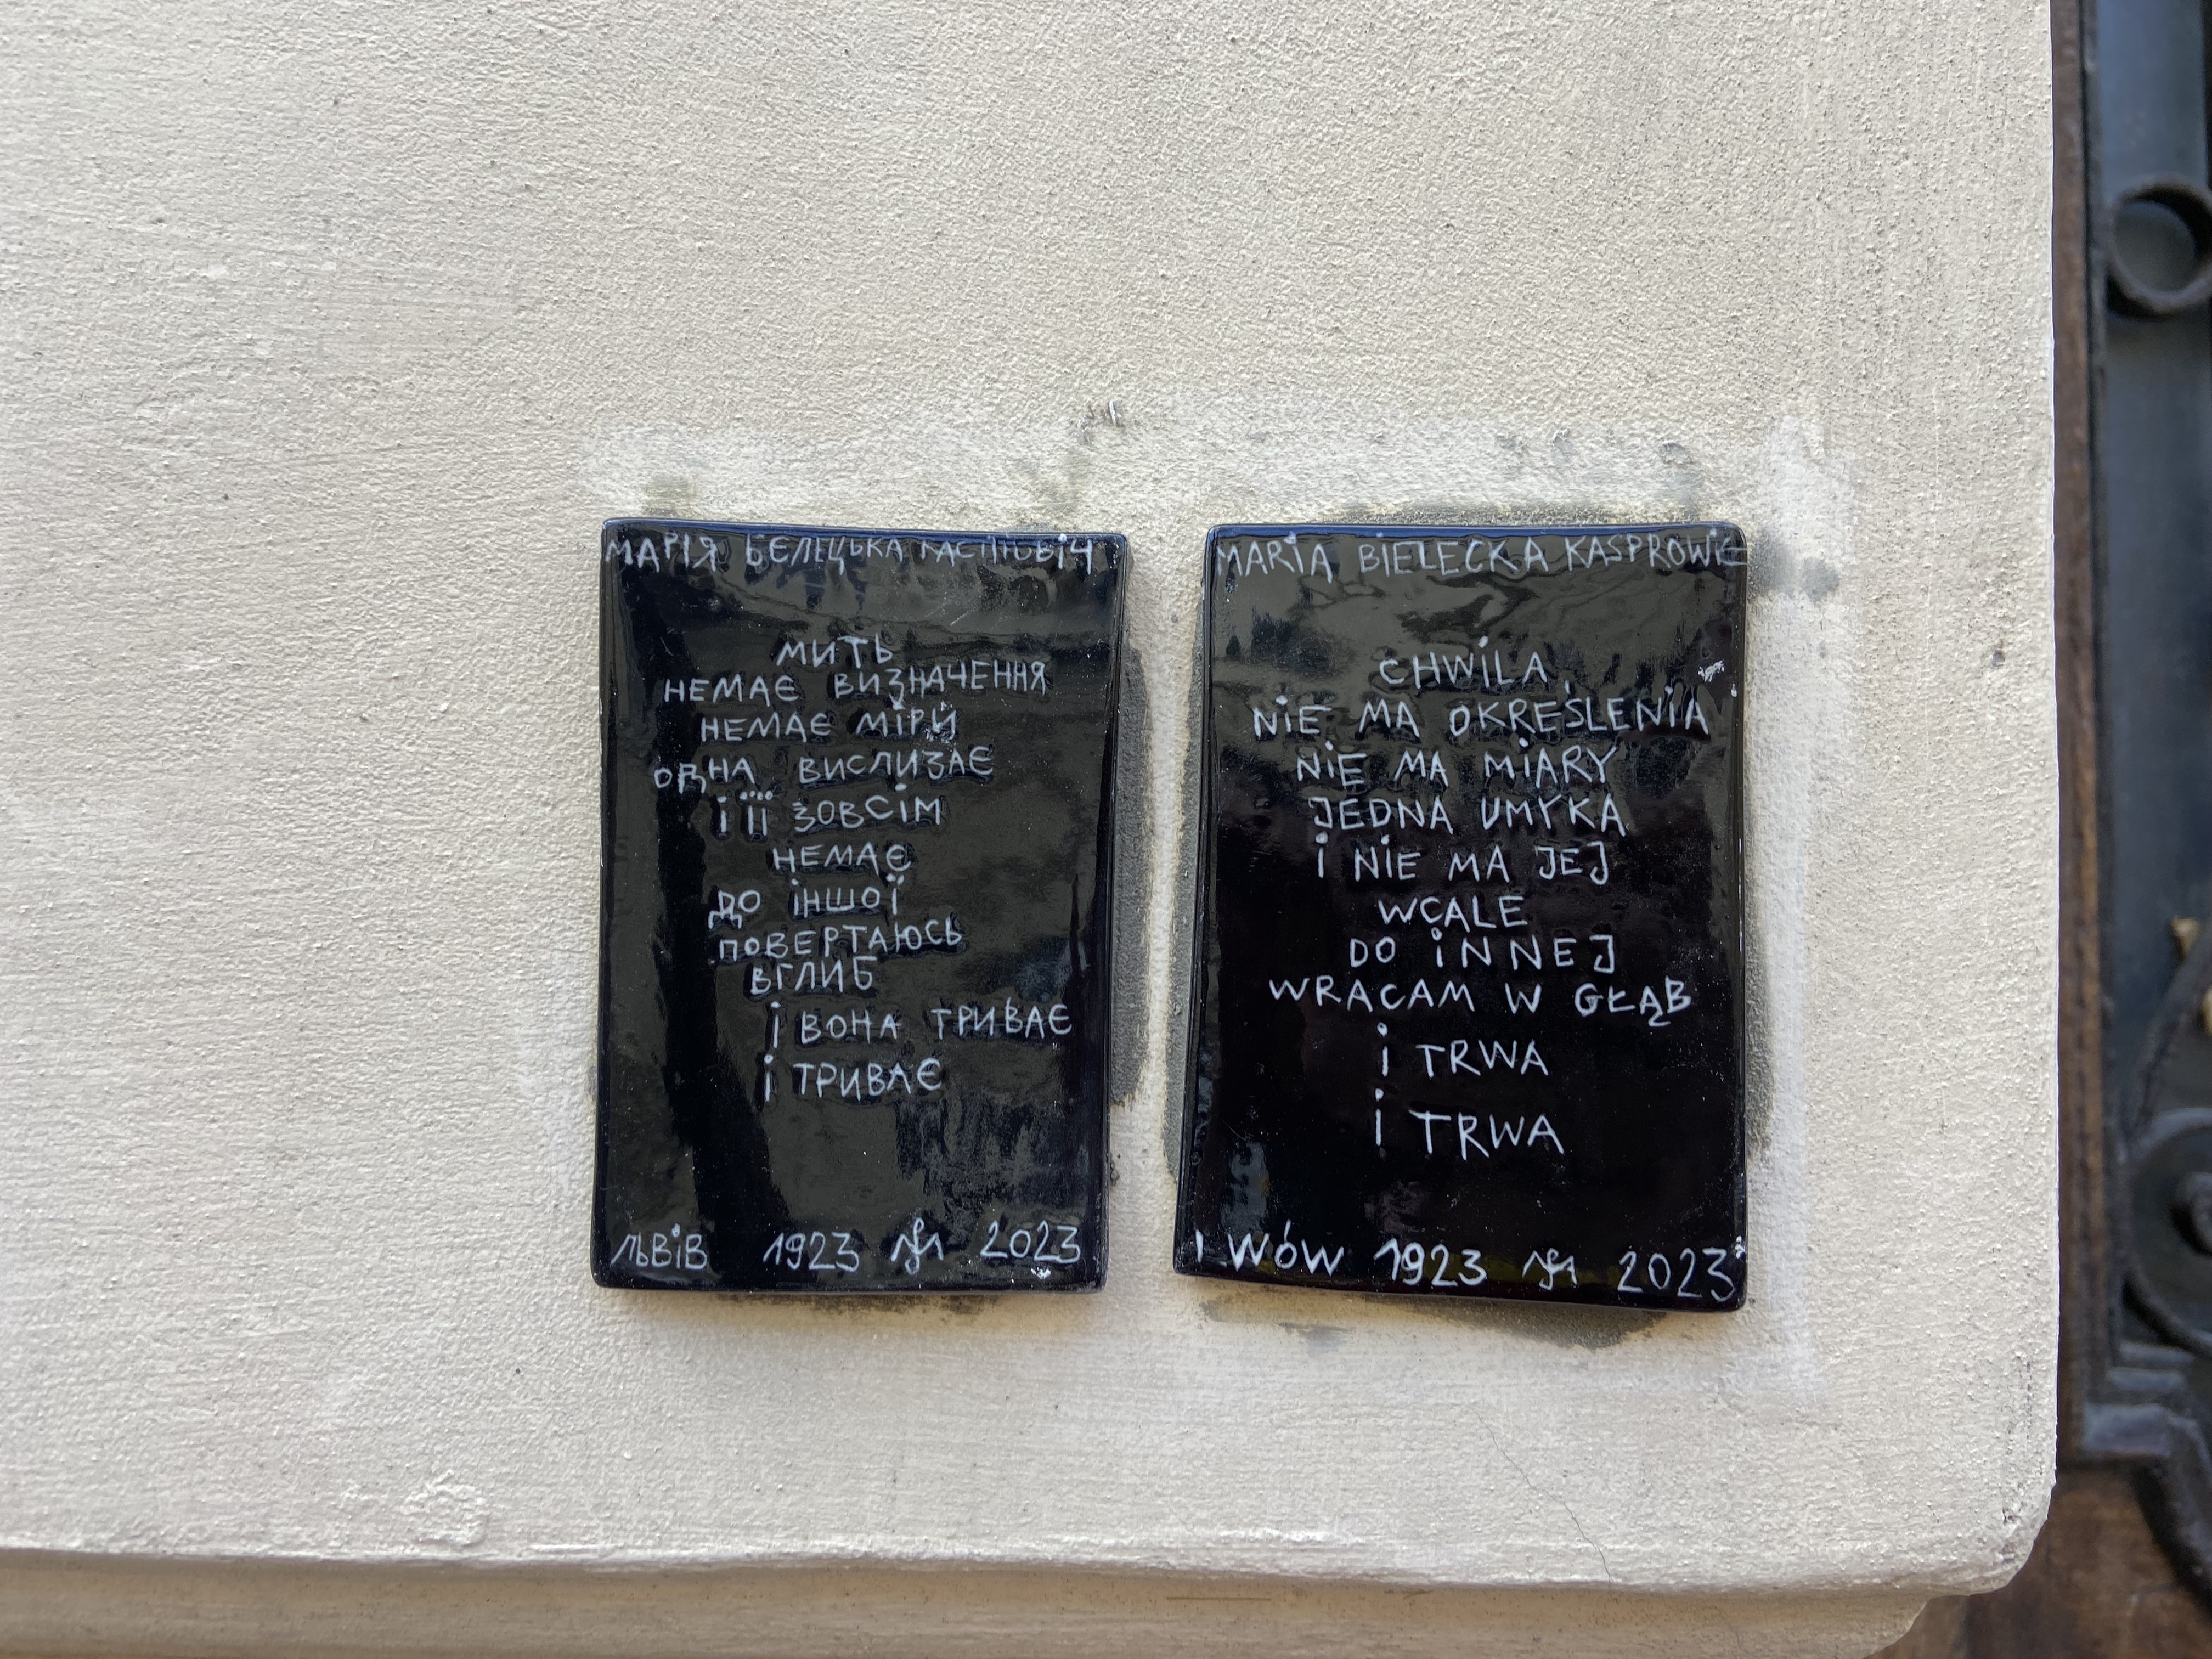 МАРІЯ БЄЛЕЦЬКА
МИТЬ
НЕМАЄ ВИЗНАЧЕННЯ
НЕМАЄ МІРИ
ОДНА ВИСЛИЗАЄ
І ЇЇ ЗОВСІМ
НЕМАЄ
ДО ІНШОЇ
ПОВЕРТАЮСЬ
ВГЛИБ
І ВОНА ТРИВАЄ
І ТРИВАЄ
ЛЬВІВ 1923 2023
MARIA BIELECKA KASPROWIC
CHWILA
NIE MA OKREŚLENIA
NIE MA MIARY
JEDNA UMYKA
I NIE MA JEJ
WCALE
DO INNEJ
WRACAM W GŁĄB
I TRWA
I TRWA
LWÓW 1923 2023